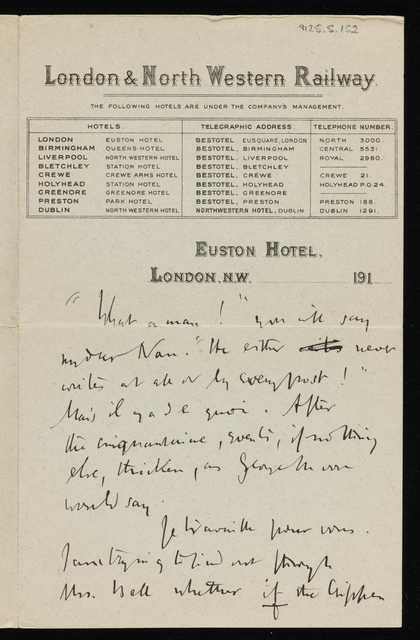 9125.S.152
London & North Western Railway.
THE FOLLOWING HOTELS ARE UNDER THE COMPANY'S MANAGEMENT.
HOTELS. TELEGRAPHIC ADDRESS TELEPHONE NUMBER.
LONDON EUSTON HOTEL BESTOTEL EUSQUARE, LONDON NORTH 3000.
BIRMINGHAM QUEENS HOTEL BESTOTEL, BIRMINGHAM CENTRAL 5531.
LIVERPOOL NORTH WESTERN HOTEL BESTOTEL, LIVERPOOL ROYAL 2980.
BLETCHLEY STATION HOTEL BESTOTEL, BLETCHLEY
CREWE CREWE ARMS HOTEL BESTOTEL, CREWE CREWE 21.
HOLYHEAD STATION HOTEL BESTOTEL, HOLYHEAD HOLYHEAD P.O. 24.
GREENORE GREENORE HOTEL BESTOTEL, GREENORE
PRESTON PARK HOTEL BESTOTEL, PRESTON PRESTON 188.
DUBLIN NORTH WESTERN HOTEL NORTHWESTERN HOTEL, DUBLIN DUBLIN 1291.
EUSTON HOTEL,
LONDON, N.W. 191
"What a man!" you will say
my dear Nan. "He either never
writes at all or by every post!"
Mais il y a de quoi. After
the cinquantaine, events, if nothing
else, thicken, as George Moore
would say.
Je travaille pour vous.
I am trying to find out through
Mrs. Bell whether if the